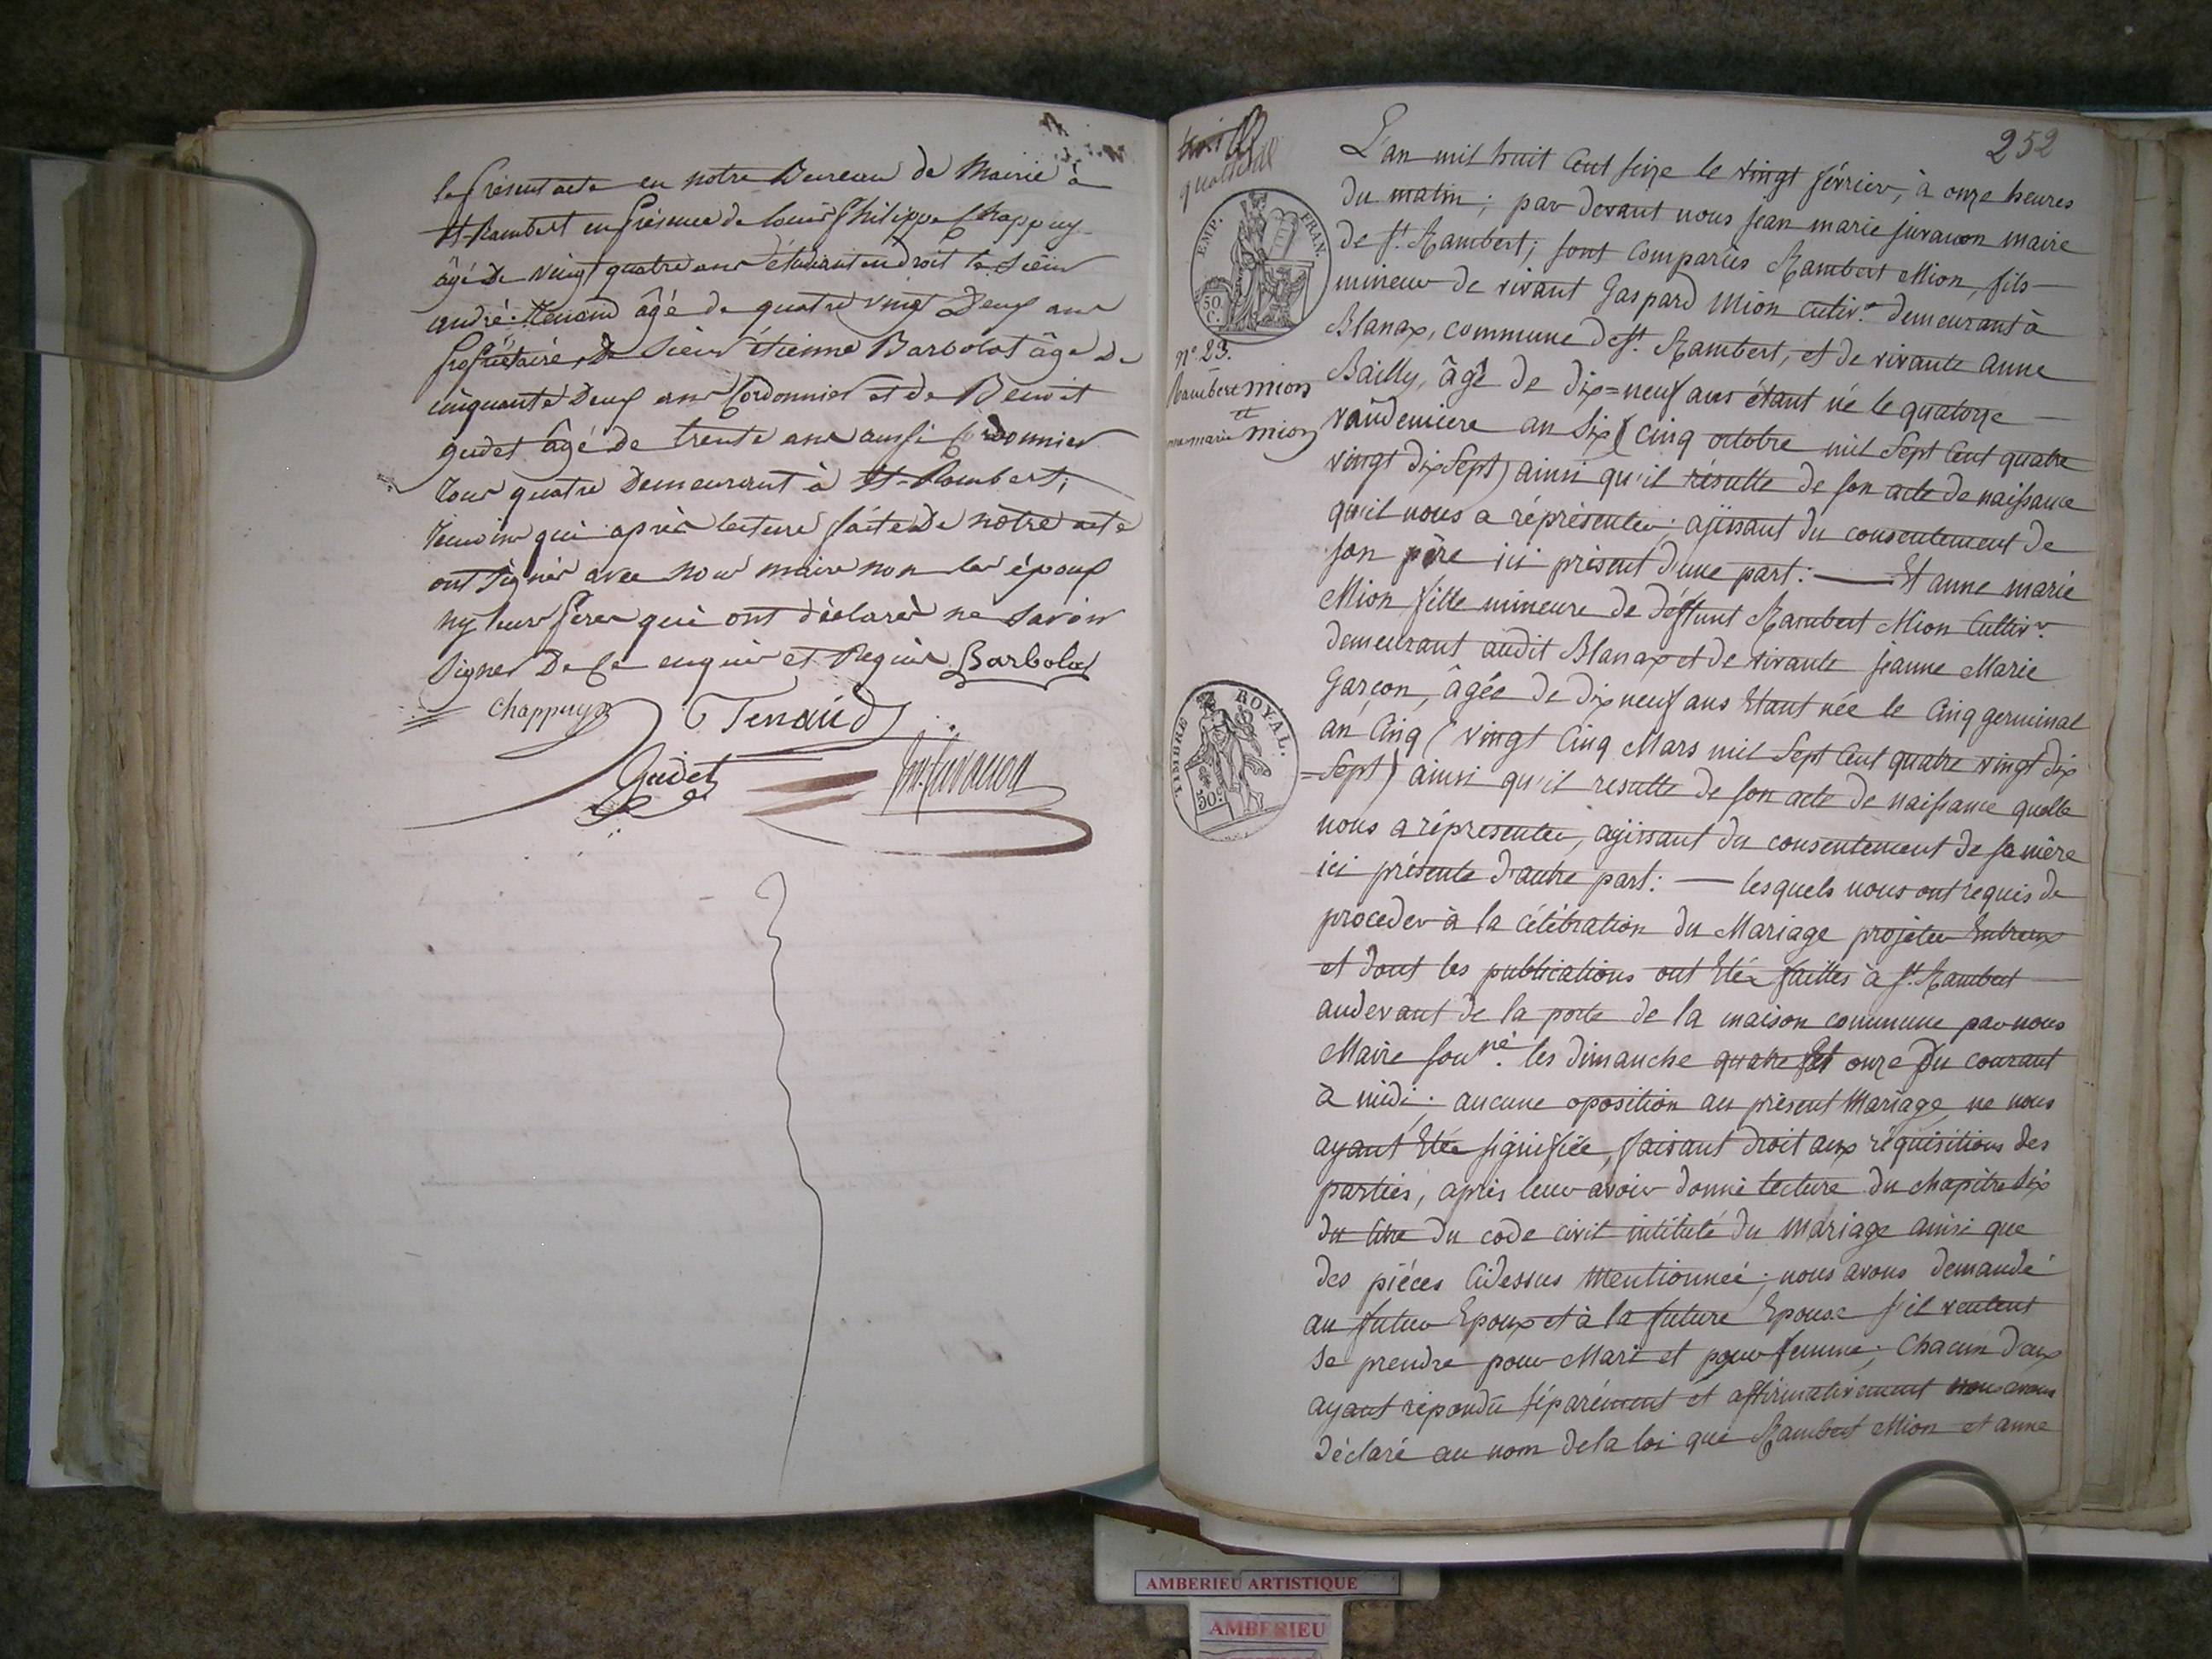 le présent acte en notre Bureau de Mairie à
St-Rambert en présence de louis Philippe Chappuy
âgé de vingt quatre ans étudiant en droit le Sieur
andré Tenand âgé de quatre vingt Deux ans
propriétaire, De Sieur étienne Barbolat âgé de
cinquante Deux ans Cordonnier et de Benoit
gudet âgé de trente ans aussi Cordonnier
tous quatre Demeurant à St-Rambert,
témoins qui après lecture faite De nôtre acte
ont signés avec nous maire non les époux
ny leurs pères qui ont déclarés ne savoir
signer De ce enquis et Requis Barbolat
Chappuy Tenaud
Gudet jm. juvanon
252
quatre
EMP. FRAN.
50 C.
N° 23.
Rambert mion
et
anne marie mion
TIMBRE ROYAL.
50 c
L'an mil huit Cent seize le vingt février, à onze heures
du matin; par devant nous jean marie juvanon maire
de St. Rambert; sont Comparus Rambert Mion, fils
mineur de vivant Gaspard Mion Cultivr. demeurant à
Blanax, commune de St. Rambert, et de vivante anne
Bailly, âgé de dix=neuf ans étant né le quatorze
vandemiere an Six (cinq octobre mil Sept Cent quatre
vingt dix Sept) ainsi qu'il résulte de son acte de naissance
qu'il nous a réprésenter; ajissant du consentement de
son père ici présent d'une part: — Et anne marie
Mion fille mineure de déffunt Rambert Mion Cultivr.
demeurant audit Blanax et de vivante jeanne Marie
Garçon, âgée de dix neuf ans Etant née le Cinq germinal
an Cinq (vingt Cinq Mars mil Sept Cent quatre vingt dix
=Sept) ainsi qu'il resulte de son acte de naissance quelle
nous a répresenter, agissant du consentement de sa mère
ici présente d'autre part: — lesquels nous ont requis de
proceder à la célébration du Mariage projetter Entreux
et dont les publications ont Eté faittes à St. Rambert
audevant de la porte de la maison commune par nous
Maire sousné. les dimanche quatre Et onze Du courant
à midi; aucune oposition au présent Mariage ne nous
ayant Etée signifiée, faisant droit aux réquisitions des
parties, après leur avoir donné lecture du chapitre Six
du titre du code civil intitulé du Mariage ainsi que
des piéces Cidessus Mentionnée; nous avons demandé
au futur Epoux et à la future Epouse s'il veulent
se prendre pour Mari et pour femme; Chacun d'eux
ayant répondu séparément et affirmativement nous avons
déclaré au nom de la loi que Rambert Mion et anne
AMBERIEU ARTISTIQUE
AMBERIEU